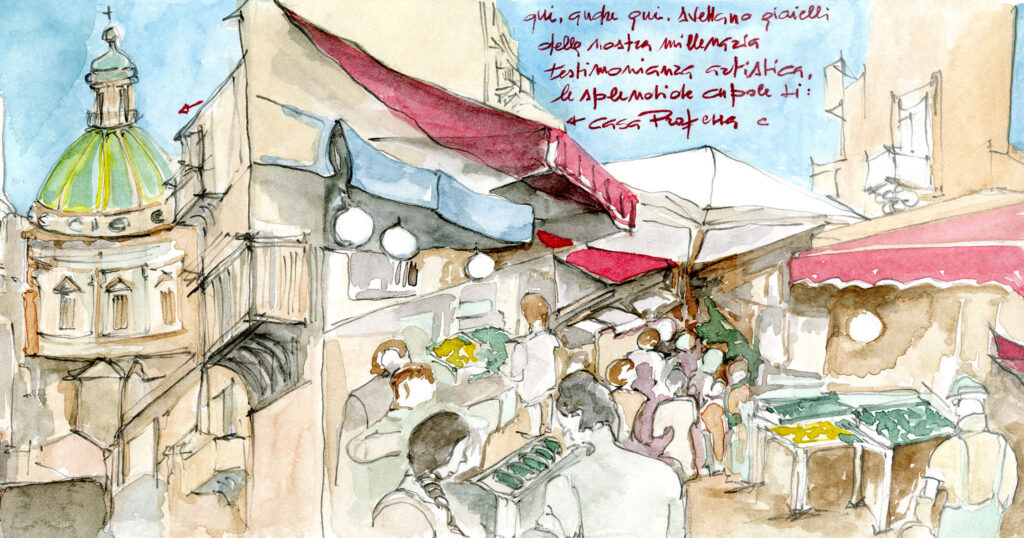 qui, anche qui, svettano gioielli
della nostra millenaria
testimonianza artistica,
le splendide cupole di:
← Casa Professa e